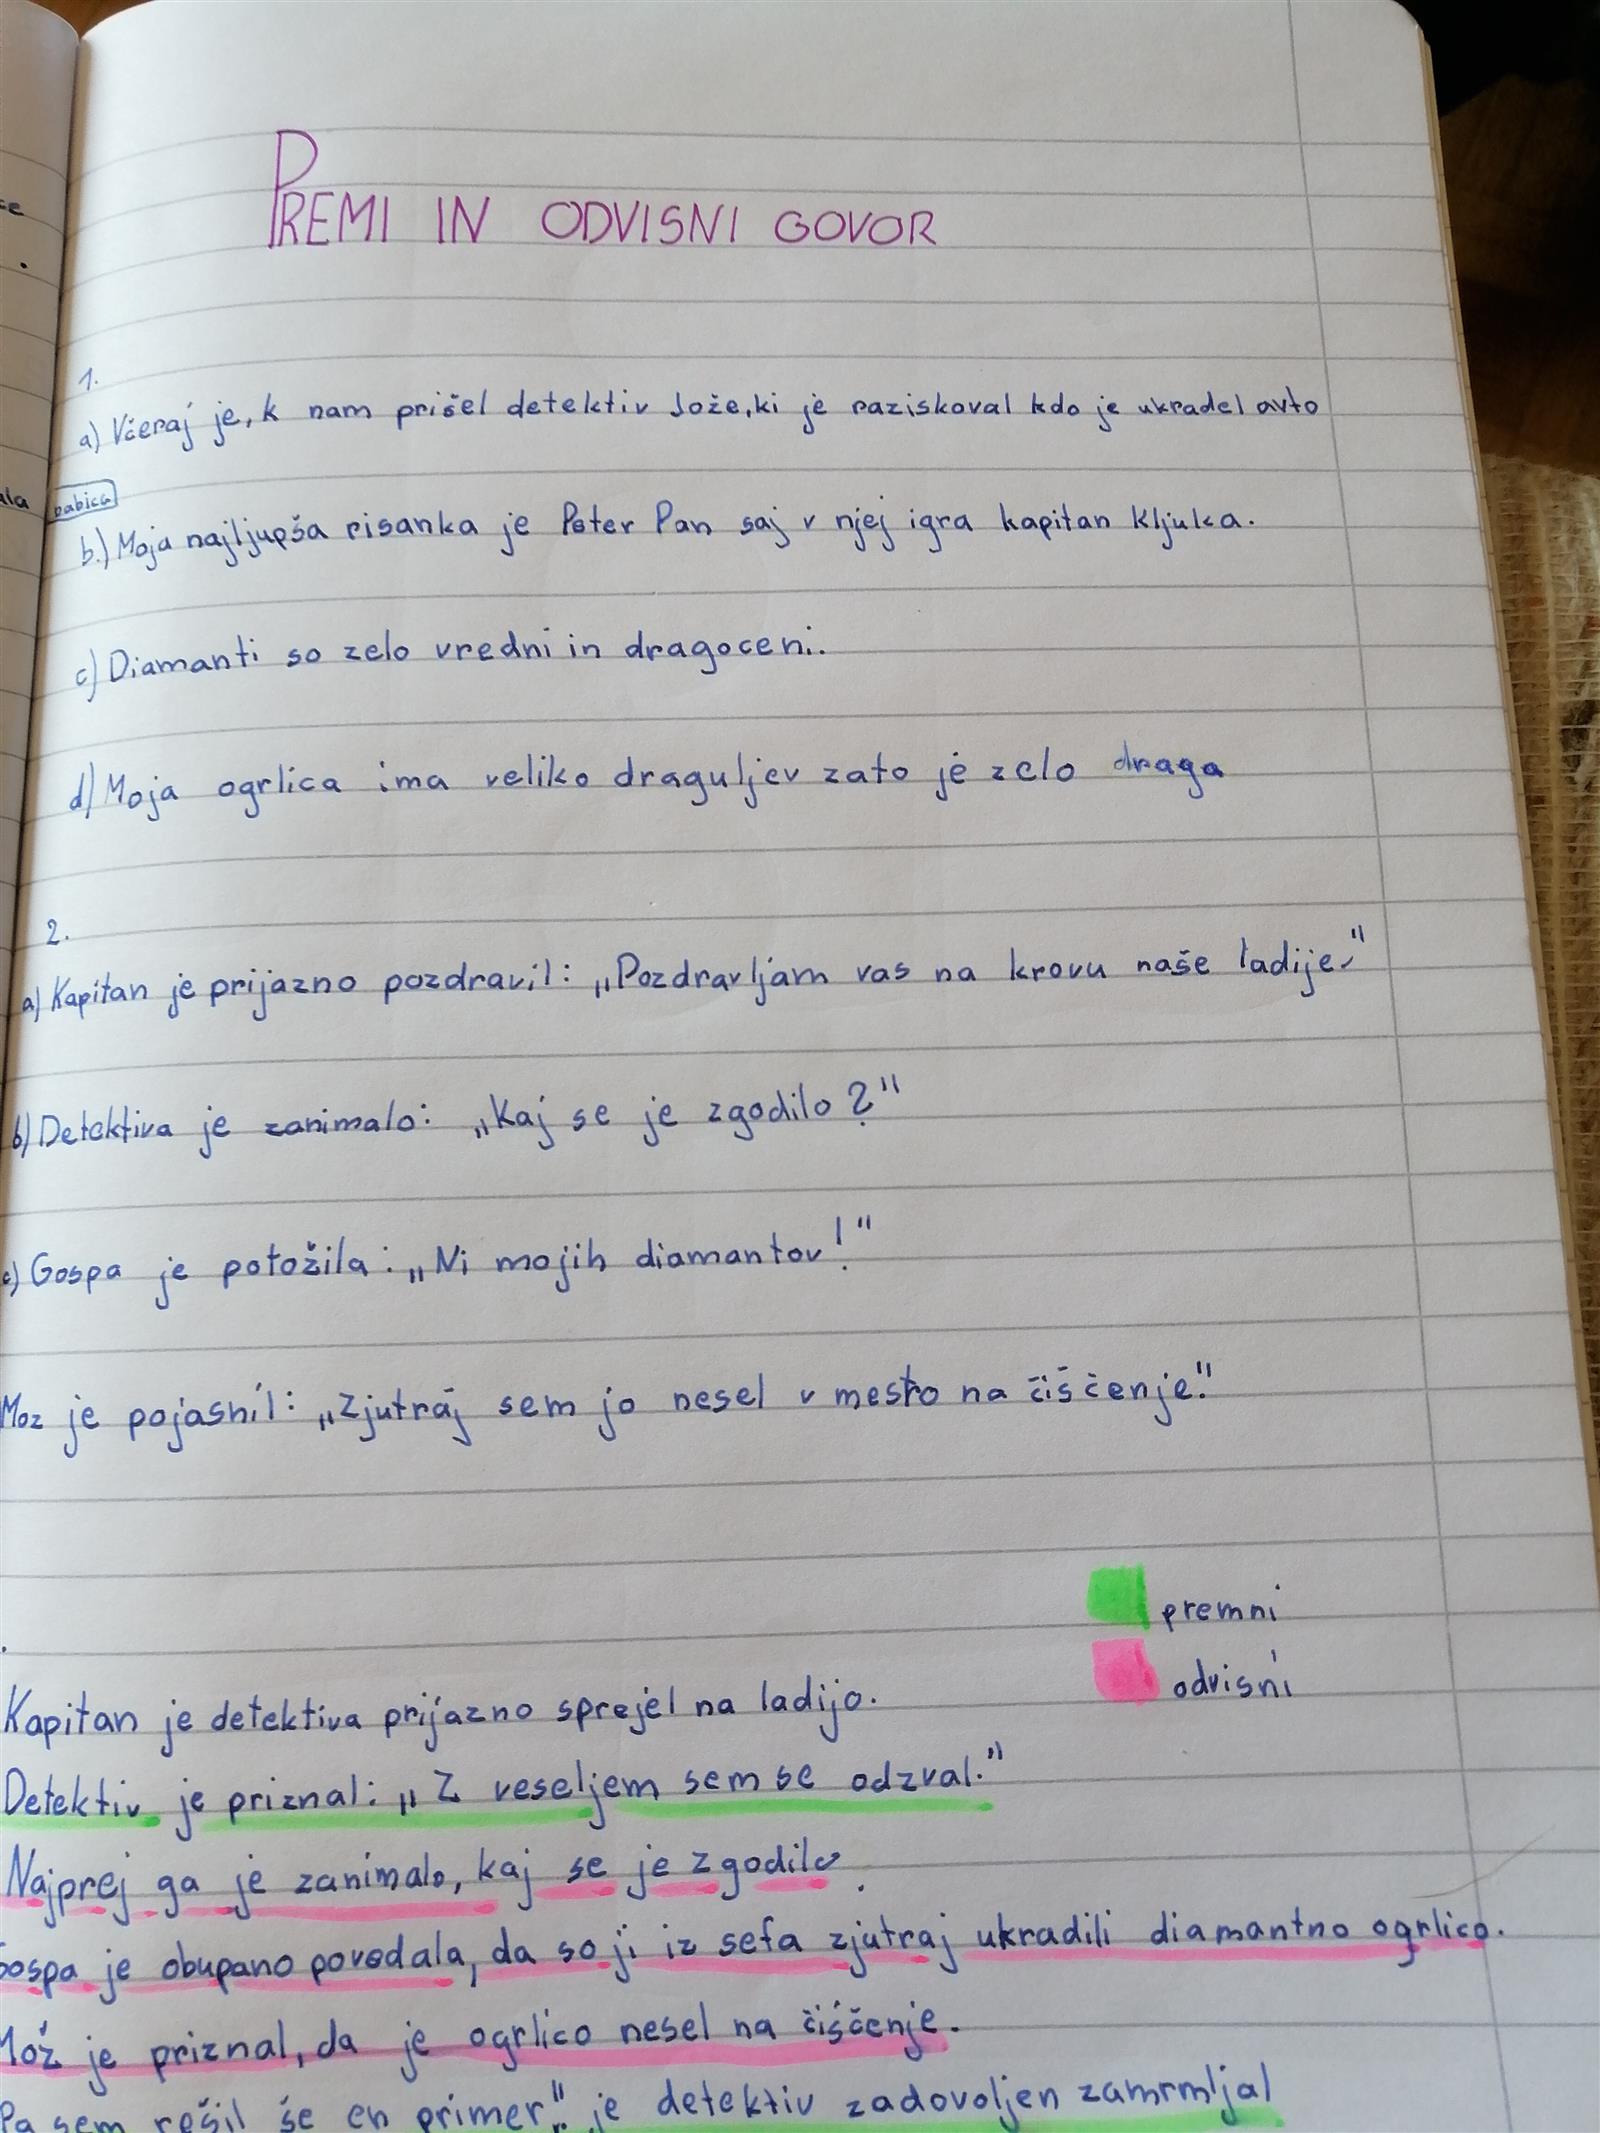 PREMI IN ODVISNI GOVOR
1.
a) Včeraj je, k nam prišel detektiv Jože, ki je raziskoval kdo je ukradel avto
babica
b.) Moja najljupša risanka je Peter Pan saj v njej igra kapitan Kljuka.
c) Diamanti so zelo vredni in dragoceni.
d) Moja ogrlica ima veliko draguljev zato je zelo draga
2.
a) Kapitan je prijazno pozdravil: „Pozdravljam vas na krovu naše ladije."
b) Detektiva je zanimalo: „Kaj se je zgodilo?"
c) Gospa je potožila: „Ni mojih diamantov!"
Moz je pojasnil: „Zjutraj sem jo nesel v mesto na čiščenje."
premni
odvisni
Kapitan je detektiva prijazno sprejel na ladijo.
Detektiv je priznal: „Z veseljem sem se odzval."
Najprej ga je zanimalo, kaj se je zgodilo.
Gospa je obupano povedala, da so ji iz sefa zjutraj ukradili diamantno ogrlico.
Mož je priznal, da je ogrlico nesel na čiščenje.
Pa sem rešil še en primer." je detektiv zadovoljen zamrmljal